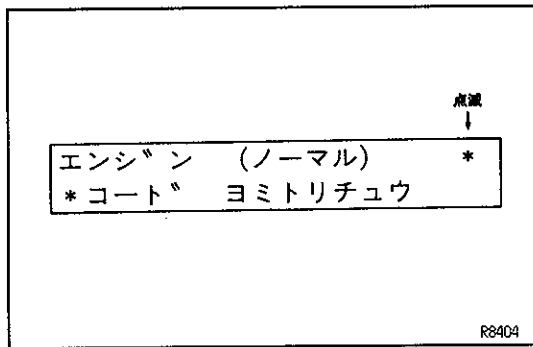 点滅
↓
エンジン (ノーマル) *
*コード ヨミトリチュウ
R8404